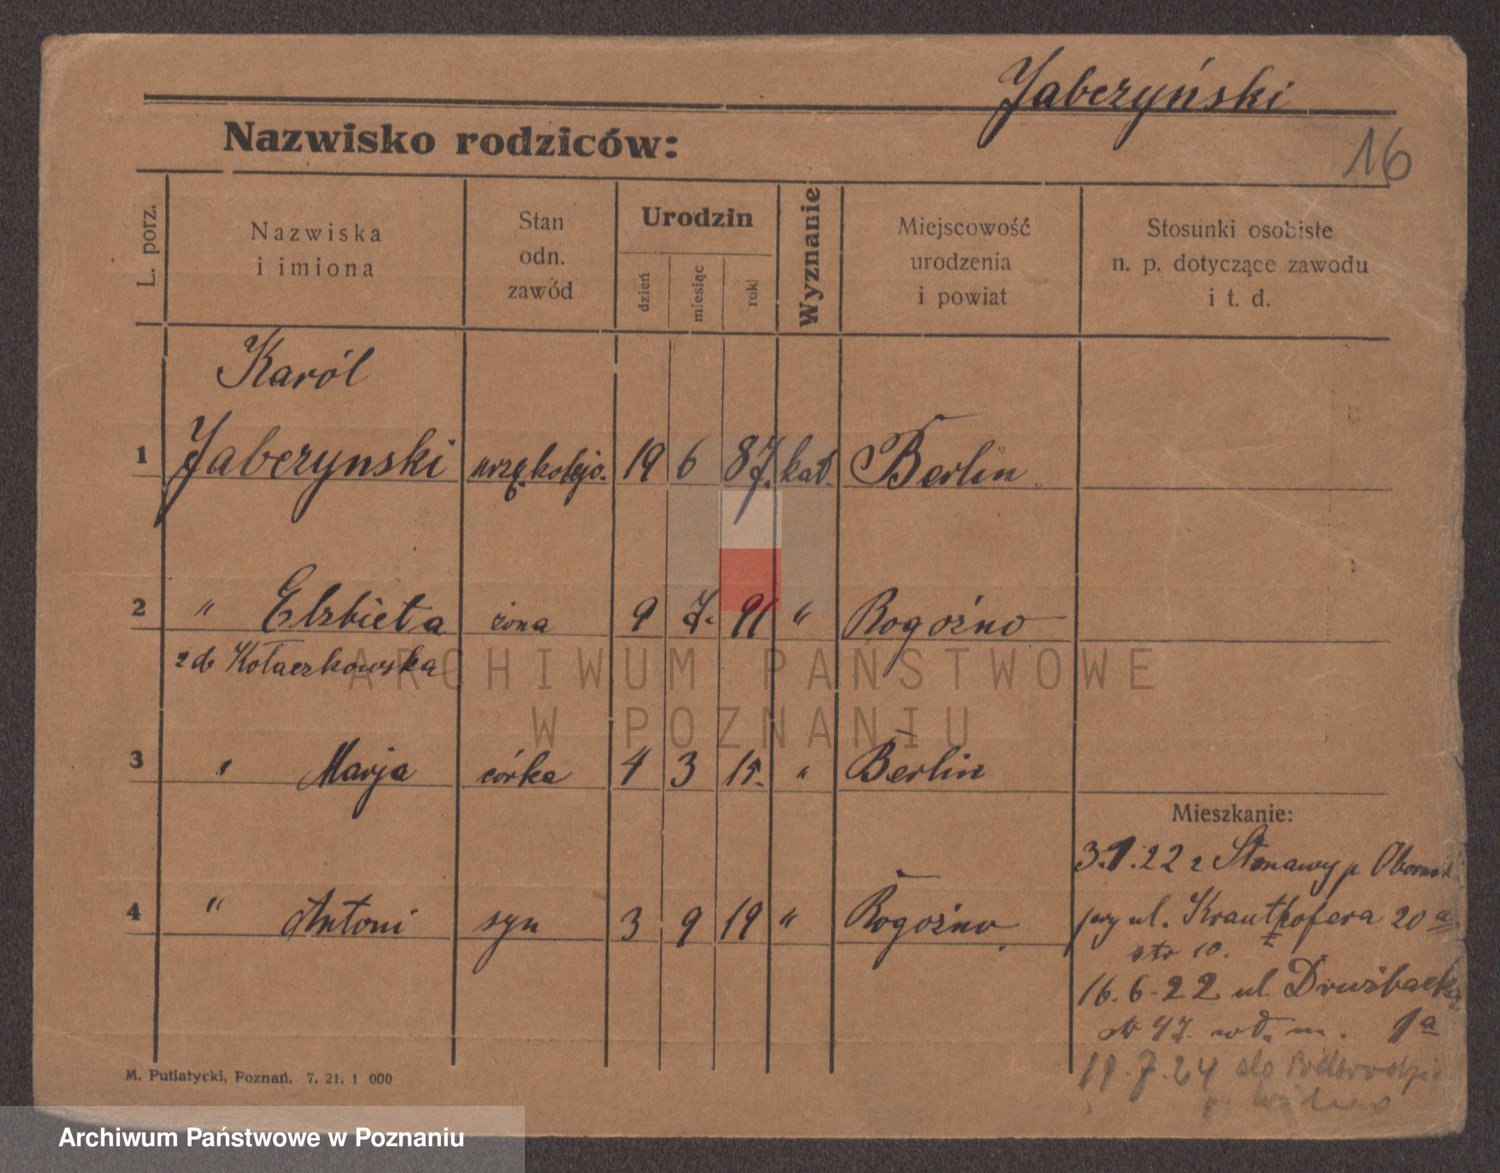 Jabczyński
16
Nazwisko rodziców:
L. porz.
Nazwiska
i imiona
Stan
odn.
zawód
Urodzin
dzień
miesiąc
rok
Wyznanie
Miejscowość
urodzenia
i powiat
Stosunki osobiste
n. p. dotyczące zawodu
i t. d.
Karól
1 Jabczynski urzę. kolejo. 19 6 87. kat. Berlin
2 " Elzbieta żona 9 7. 91 " Rogoźno
z d. Kołaczkowska
3 " Marja córka 4 3 15. " Berlin
Mieszkanie:
3.1.22 z Stonawy p Obornik
przy ul. Krauthofera 20a
str 10.
4 " Antoni syn 3 9 19 " Rogoźno
16.6.22 ul Drużbackiej
str 47. 1a
19.7.24 do Podbrodzie
M. Putiatycki, Poznań. 7. 21. 1 000
ARCHIWUM PAŃSTWOWE
W POZNANIU
Archiwum Państwowe w Poznaniu